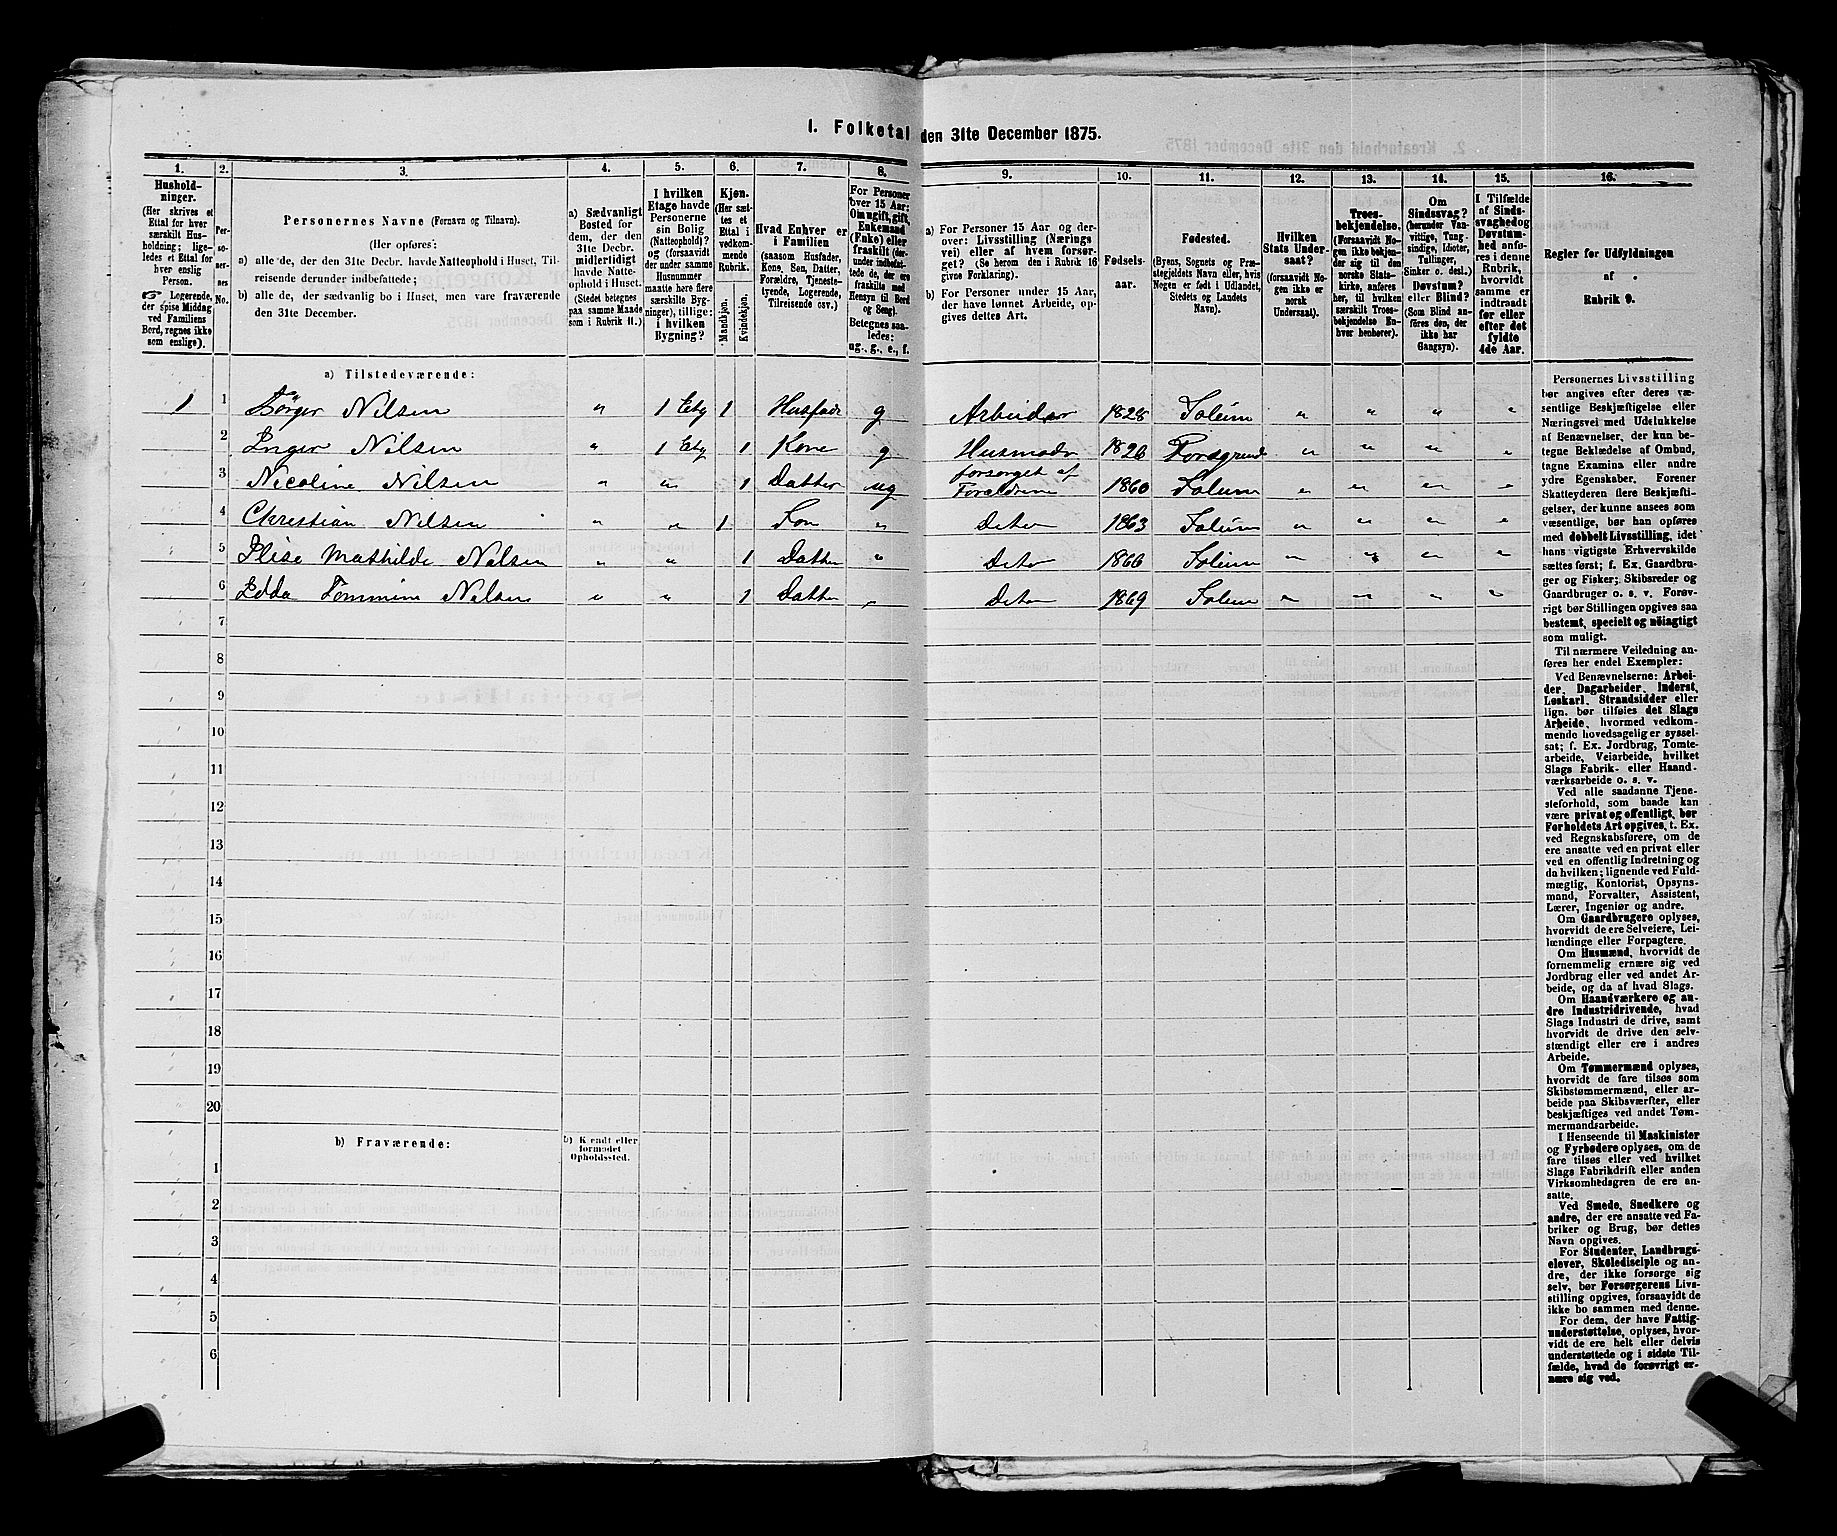 1. Folketal den 31te December 1875.
1.
2.
3.
4.
5.
6.
7.
8.
9.
10.
11.
12.
13.
14.
15.
16.
Hushold-
ninger.
(Her skrives et
Ettal for hver
særskilt Hus-
holdning; lige-
ledes et Ettal for
hver enslig
Person.
☞ Logerende,
der spise Middag
ved Familiens
Bord, regnes ikke
som enslige).
Per-
so-
ner-
nes
No.
Personernes Navne (Fornavn og Tilnavn).
(Her opføres:
a) alle de, der den 31te Decbr. havde Natteophold i Huset, Til-
reisende derunder indbefattede;
b) alle de, der sædvanlig bo i Huset, men vare fraværende
den 31te December.
a) Sædvanligt
Bosted for
dem, der den
31te Decbr.
midlertidigt
havde Natte-
ophold i Huset.
(Stedet betegnes
paa samme Maade
som i Rubrik 11.)
I hvilken
Etage havde
Personerne
sin Bolig
(Natteophold)?
og (forsaavidt
der under samme
Husnummer
maatte høre flere
særskilte Byg-
ninger), tillige:
i hvilken
Bygning?
Kjøn.
(Her sæt-
tes et
Ettal i
vedkom-
mende
Rubrik.
Mandkjøn.
Kvindekjøn.
Hvad Enhver er
i Familien
(saasom Husfader,
Kone, Søn, Datter,
Forældre, Tjeneste-
tyende, Logerende,
Tilreisende osv.)
For Personer
over 15 Aar:
Om ugift, gift,
Enkemand
(Enke) eller
fraskilt (der-
under indbefat-
tede de, der ere
fraskilte med
Hensyn til Bord
og Seng).
Betegnes saa-
ledes:
ug., g., e., f.
a) For Personer 15 Aar og der-
over: Livsstilling (Nærings
vei) eller af hvem forsør-
get? (Se herom den i Rubrik 16
givne Forklaring).
b) For Personer under 15 Aar,
der have lønnet Arbeide, op-
gives dettes Art.
Fødsels-
aar.
Fødested.
(Byens, Sognets og Præ-
stegjeldets Navn eller, hvis
Nogen er født i Udlandet,
Stedets og Landets
Navn).
Hvilken
Stats Under-
saat?
(forsaavidt No-
gen ikke er
norsk
Undersaat).
Troes-
bekjendelse.
(Forsaavidt No-
gen ikke bekjen-
der sig til den
norske Stats-
kirke, anføres
her, til hvilken
særskilt Troes-
bekjendelse En-
hver henhører).
Om
Sindssvag?
(herunder Van-
vittige, Tung-
sindige, Idioter,
Tullinger,
Sinker o. desl.)
Døvstum?
eller Blind?
(Som Blind an-
føres den, der
ikke har
Gangsyn).
I Tilfælde
af Sinds-
svaghed og
Døvstum-
hed anfø-
res i denne
Rubrik,
hvorvidt
samme er
indtraadt
før eller
efter det
fyldte
4de Aar.
Regler for Udfyldningen
af
Rubrik 9.
a) Tilstedeværende:
1 1 Börger Nilsen " 1 Etg 1 Husfadr g Arbeider 1828 Solum " " " "
2 Inger Nilsen " 1 Etg 1 Kone g Husmodr 1826 Porsgrund " " " "
3 Nicoline Nilsen " " 1 Datter ug forsørget af Forældrene 1860 Solum " " " "
4 Christian Nilsen " " 1 Søn " Dito 1863 Solum " " " "
5 Elise Mathilde Nilsen " " 1 Datter " Dito 1866 Solum " " " "
6 Edda Tommine Nilsen " " 1 Datter " Dito 1869 Solum " " " "
7
8
9
10
11
12
13
14
15
16
17
18
19
20
b) Fraværende:
b) Kjendt eller
formodet
Opholdssted.
1
2
3
4
5
6
Personernes Livsstilling
bør angives efter deres væ-
sentlige Beskjæftigelse eller
Næringsvei med Udelukkelse
af Benævnelser, der kun be-
tegne Beklædelse af Ombud,
tagne Examina eller andre
ydre Egenskaber. Forener
Skatteyderen flere Beskjæfti-
gelser, der kunne ansees som
væsentlige, bør han opføres
med dobbelt Livsstilling, idet
hans vigtigste Erhvervskilde
sættes først; f. Ex. Gaardbru-
ger og Fisker; Skibsreder og
Gaardbruger o. s. v. Forøv-
rigt bør Stillingen opgives saa
bestemt, specielt og nöiagtigt
som muligt.
Til nærmere Veiledning an-
føres her endel Exempler:
Ved Benævnelserne: Arbei-
der, Dagarbeider, Inderst,
Løskarl, Strandsidder eller
lign. bør tilføies det Slags
Arbeide, hvormed vedkom-
mende hovedsagelig er syssel-
sat; f. Ex. Jordbrug, Tomte-
arbeide, Veiarbeide, hvilket
Slags Fabrik- eller Haand-
værksarbeide o. s. v.
Ved alle saadanne Tjene-
steforhold, som baade kan
være privat og offentligt, bør
Forholdets Art opgives, t. Ex.
ved Regnskabsførere, om de
ere ansatte ved en privat eller
ved en offentlig Indretning og
da hvilken; lignende ved Fuld-
mægtig, Kontorist, Opsyns-
mand, Forvalter, Assistent,
Lærer, Ingeniør og andre.
Om Gaardbrugere oplyses,
hvorvidt de ere Selveiere, Lei-
lændinge eller Forpagtere.
Om Husmænd, hvorvidt de
fornemmelig ernære sig ved
Jordbrug eller ved andet Ar-
beide, og da af hvad Slags.
Om Haandværkere og an-
dre Industridrivende, hvad
Slags Industri de drive, samt
hvorvidt de drive den selv-
stændigt eller ere i andres
Arbeide.
Om Tømmermænd oplyses,
hvorvidt de fare tilsøs som
Skibstømmermænd, eller ar-
beide paa Skibsværfter, eller
beskjæftiges ved andet Tøm-
mermandsarbeide.
I Henseende til Maskinister
og Fyrbødere oplyses, om de
fare tilsøs eller ved hvilket
Slags Fabrikdrift eller anden
Virksomhedsgren de ere an-
satte.
Ved Smede, Snedkere og
andre, der ere ansatte ved Fa-
briker og Brug, bør dettes
Navn opgives.
For Studenter, Landbrugs-
elever, Skoledisciple og an-
dre, der ikke forsørge sig
selv, bør Forsørgerens Livs-
stilling opgives, forsaavidt de
ikke bo sammen med denne.
For dem, der have Fattig-
understøttelse, oplyses, hvor-
vidt de ere helt eller delvis
understøttede og i sidste Til-
fælde, hvad de forøvrigt er-
nære sig ved.